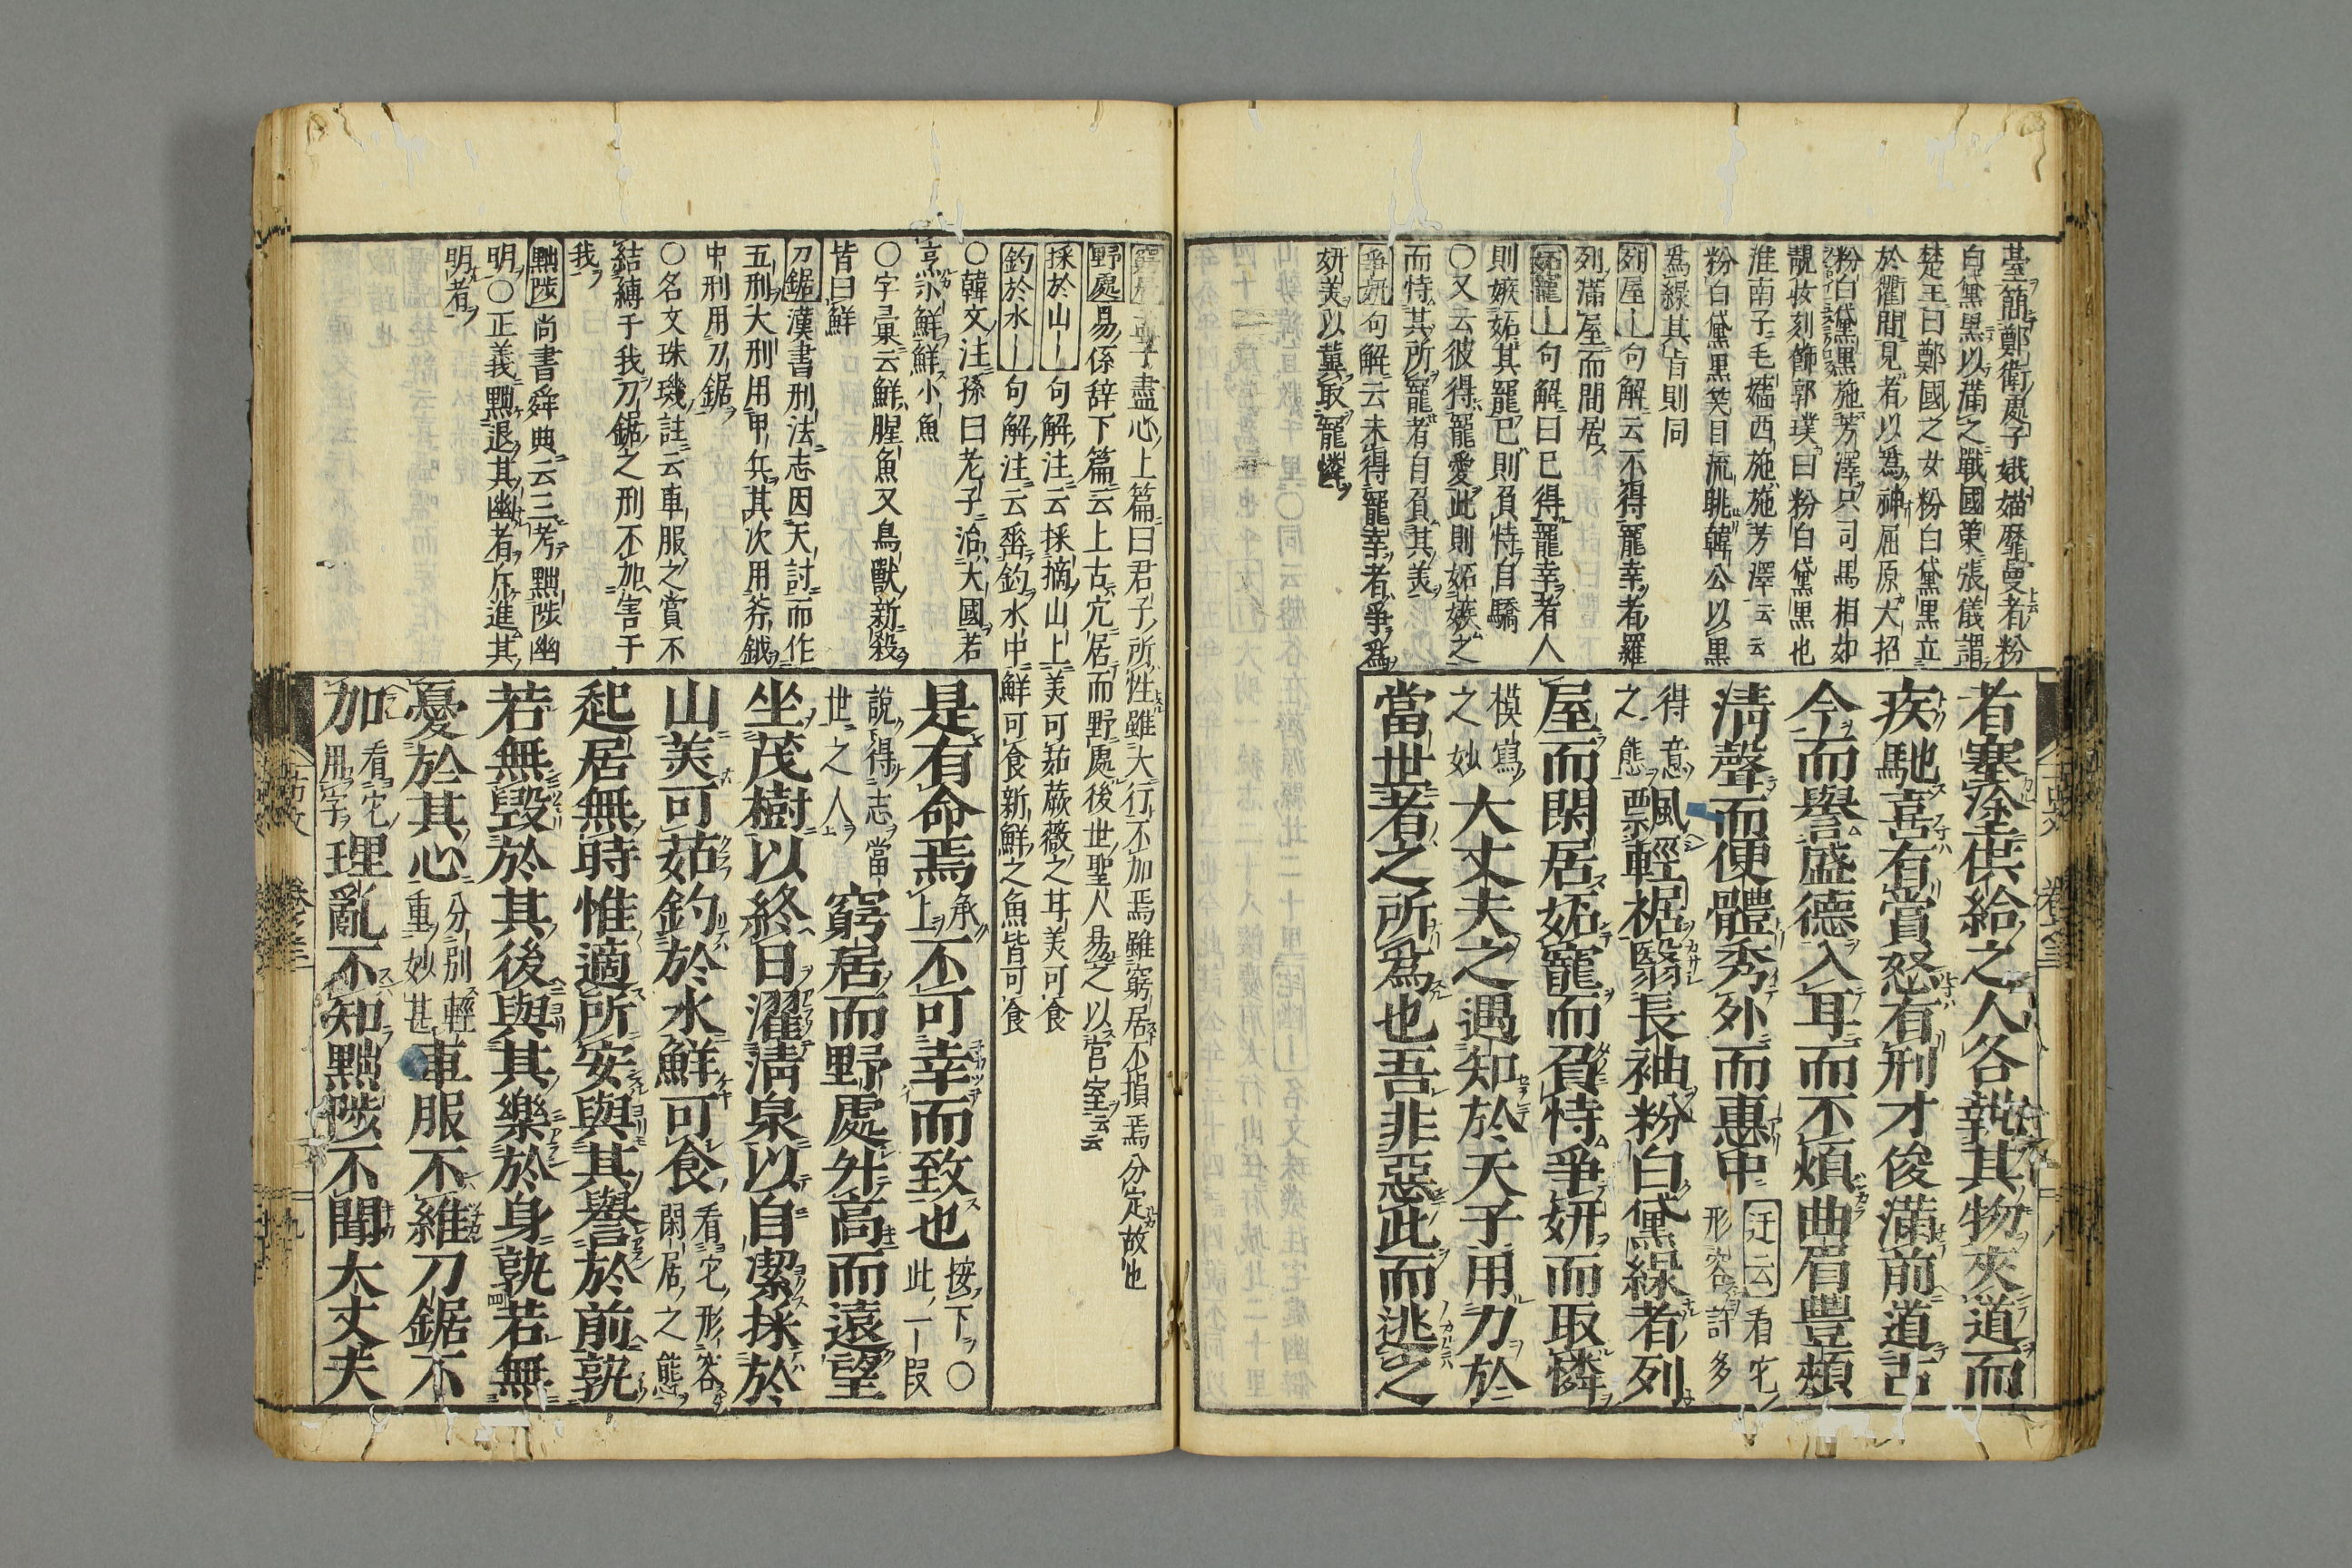 臺簡鄭衛處子娥媌靡曼者粉
白黛黒以滿之戰國策張儀謂
楚王曰鄭國之女粉白黛黒立
於衢間見者以為神屈原大招
粉白黛黒施芳澤只司馬相如
靚妝刻飾郭璞曰粉白黛黒也
淮南子毛嬙西施施芳澤云云
粉白黛黒笑目流眺韓公以黒
為緑其旨則同
列屋｜句解云不得寵幸者羅
列滿屋而間居
妬寵｜句解曰已得寵幸者人
則嫉妬其寵已則負恃自驕
○又云彼得寵愛此則妬嫉之
而恃其所寵者自負其美
爭妍句解云未得寵幸者爭為
妍美以冀取寵憐
者塞塗供給之人各執其物夾道而
疾馳喜有賞怒有刑才俊滿前道古
今而譽盛德入耳而不煩曲眉豐頰
清聲而便體秀外而惠中
迂云看它
形容許多
得意
之態
飄輕裾翳長袖粉白黛緑者列
屋而閑居妬寵而負恃爭妍而取憐
模寫
之妙
大丈夫之遇知於天子用力於
當世者之所為也吾非惡此而逃之
孟子盡心上篇曰君子所性雖大行不加焉雖窮居不損焉分定故也
野處易係辞下篇云上古穴居而野處後世聖人易之以宮室云云
採於山｜句解注云採摘山上美可茹蕨薇之耳美可食
釣於水｜句解注云垂釣水中鮮可食新鮮之魚皆可食
○韓文注孫曰老子治大國若
烹小鮮鮮小魚
○字彙云鮮腥魚又鳥獸新殺
皆曰鮮
刀鋸漢書刑法志因天討而作
五刑大刑用甲兵其次用斧鉞
中刑用刀鋸
○名文珠璣註云車服之賞不
結縛于我刀鋸之刑不加害于
我
黜陟尚書舜典云三考黜陟幽
明○正義黜退其幽者斥進其
明者
是有命焉
承
上
不可幸而致也
按下○
此一段
說得志當
世之人
窮居而野處升高而遠望
坐茂樹以終日濯清泉以自潔採於
山美可茹釣於水鮮可食
看它形容
閑居之態
起居無時惟適所安與其譽於前孰
若無毀於其後與其樂於身孰若無
憂於其心
分別輕
重妙甚
車服不維刀鋸不
加
看它
用字
理亂不知黜陟不聞大丈夫